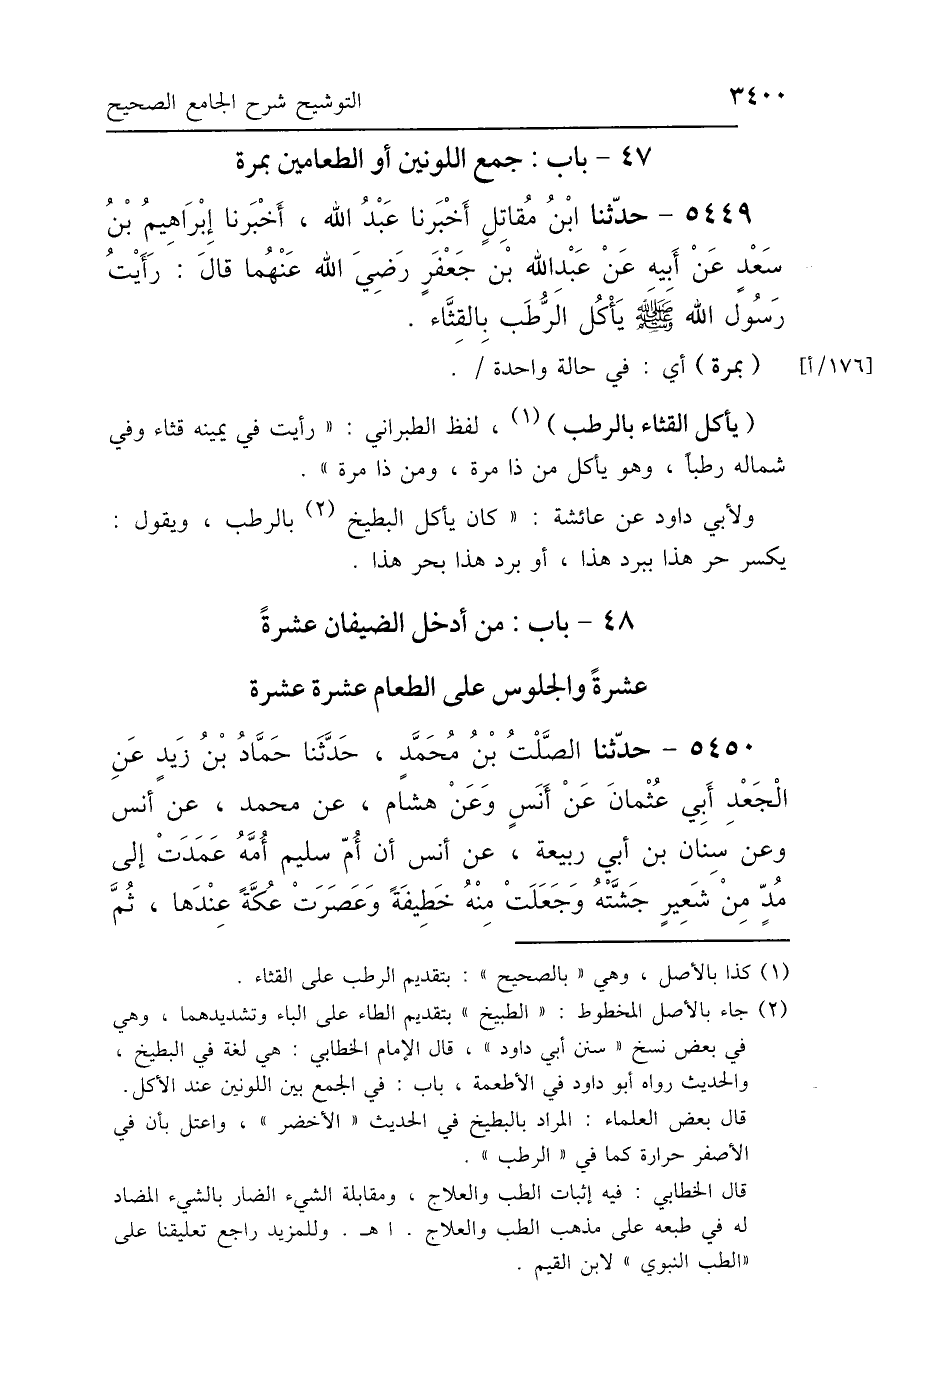 ٣٤٠٠ التوشيح شرح الجامع الصحيح
٤٧ - باب : جمع اللونين أو الطعامين بمرة
٥٤٤٩ - حدّثنا ابْنُ مُقاتِلٍ أَخْبَرنا عَبْدُ الله ، أَخْبَرنا إِبْرَاهِيمُ بْنُ
سَعْدٍ عَنْ أَبِيهِ عَنْ عَبْدِالله بْنِ جَعْفَرٍ رَضِيَ الله عَنْهُما قالَ : رَأَيْتُ
رَسُولَ الله ﷺ يَأْكُلُ الرُّطَبَ بِالقِثَّاءِ .
( بمرة ) أي : في حالة واحدة / . [١٧٦/أ]
( يأكل القثاء بالرطب )(١) ، لفظ الطبراني : « رأيت في يمينه قثاء وفي
شماله رطباً ، وهو يأكل من ذا مرة ، ومن ذا مرة » .
ولأبي داود عن عائشة : « كان يأكل البطيخ (٢) بالرطب ، ويقول :
يكسر حر هذا ببرد هذا ، أو برد هذا بحر هذا .
٤٨ - باب : من أدخل الضيفان عشرةً
عشرةً والجلوس على الطعام عشرة عشرة
٥٤٥٠ - حدّثنا الصَّلْتُ بْنُ مُحَمَّدٍ ، حَدَّثَنا حَمَّادُ بْنُ زَيدٍ عَنِ
الْجَعْدِ أَبِي عُثْمانَ عَنْ أَنَسٍ وَعَنْ هشام ، عن محمد ، عن أنس
وعن سِنان بن أبي ربيعة ، عن أنس أن أُمّ سليم أُمَّهُ عَمَدَتْ إلى
مُدٍّ مِنْ شَعِيرٍ جَشَّتْهُ وَجَعَلَتْ مِنْهُ خَطِيفَةً وَعَصَرَتْ عُكَّةً عِنْدَها ، ثُمَّ
(١) كذا بالأصل ، وهي « بالصحيح » : بتقديم الرطب على القثاء .
(٢) جاء بالأصل المخطوط : « الطبيخ » بتقديم الطاء على الباء وتشديدهما ، وهي
في بعض نسخ « سنن أبي داود » ، قال الإمام الخطابي : هي لغة في البطيخ ،
والحديث رواه أبو داود في الأطعمة ، باب : في الجمع بين اللونين عند الأكل.
قال بعض العلماء : المراد بالبطيخ في الحديث « الأخضر » ، واعتل بأن في
الأصفر حرارة كما في « الرطب » .
قال الخطابي : فيه إثبات الطب والعلاج ، ومقابلة الشيء الضار بالشيء المضاد
له في طبعه على مذهب الطب والعلاج . ا هـ . وللمزيد راجع تعليقنا على
«الطب النبوي » لابن القيم .